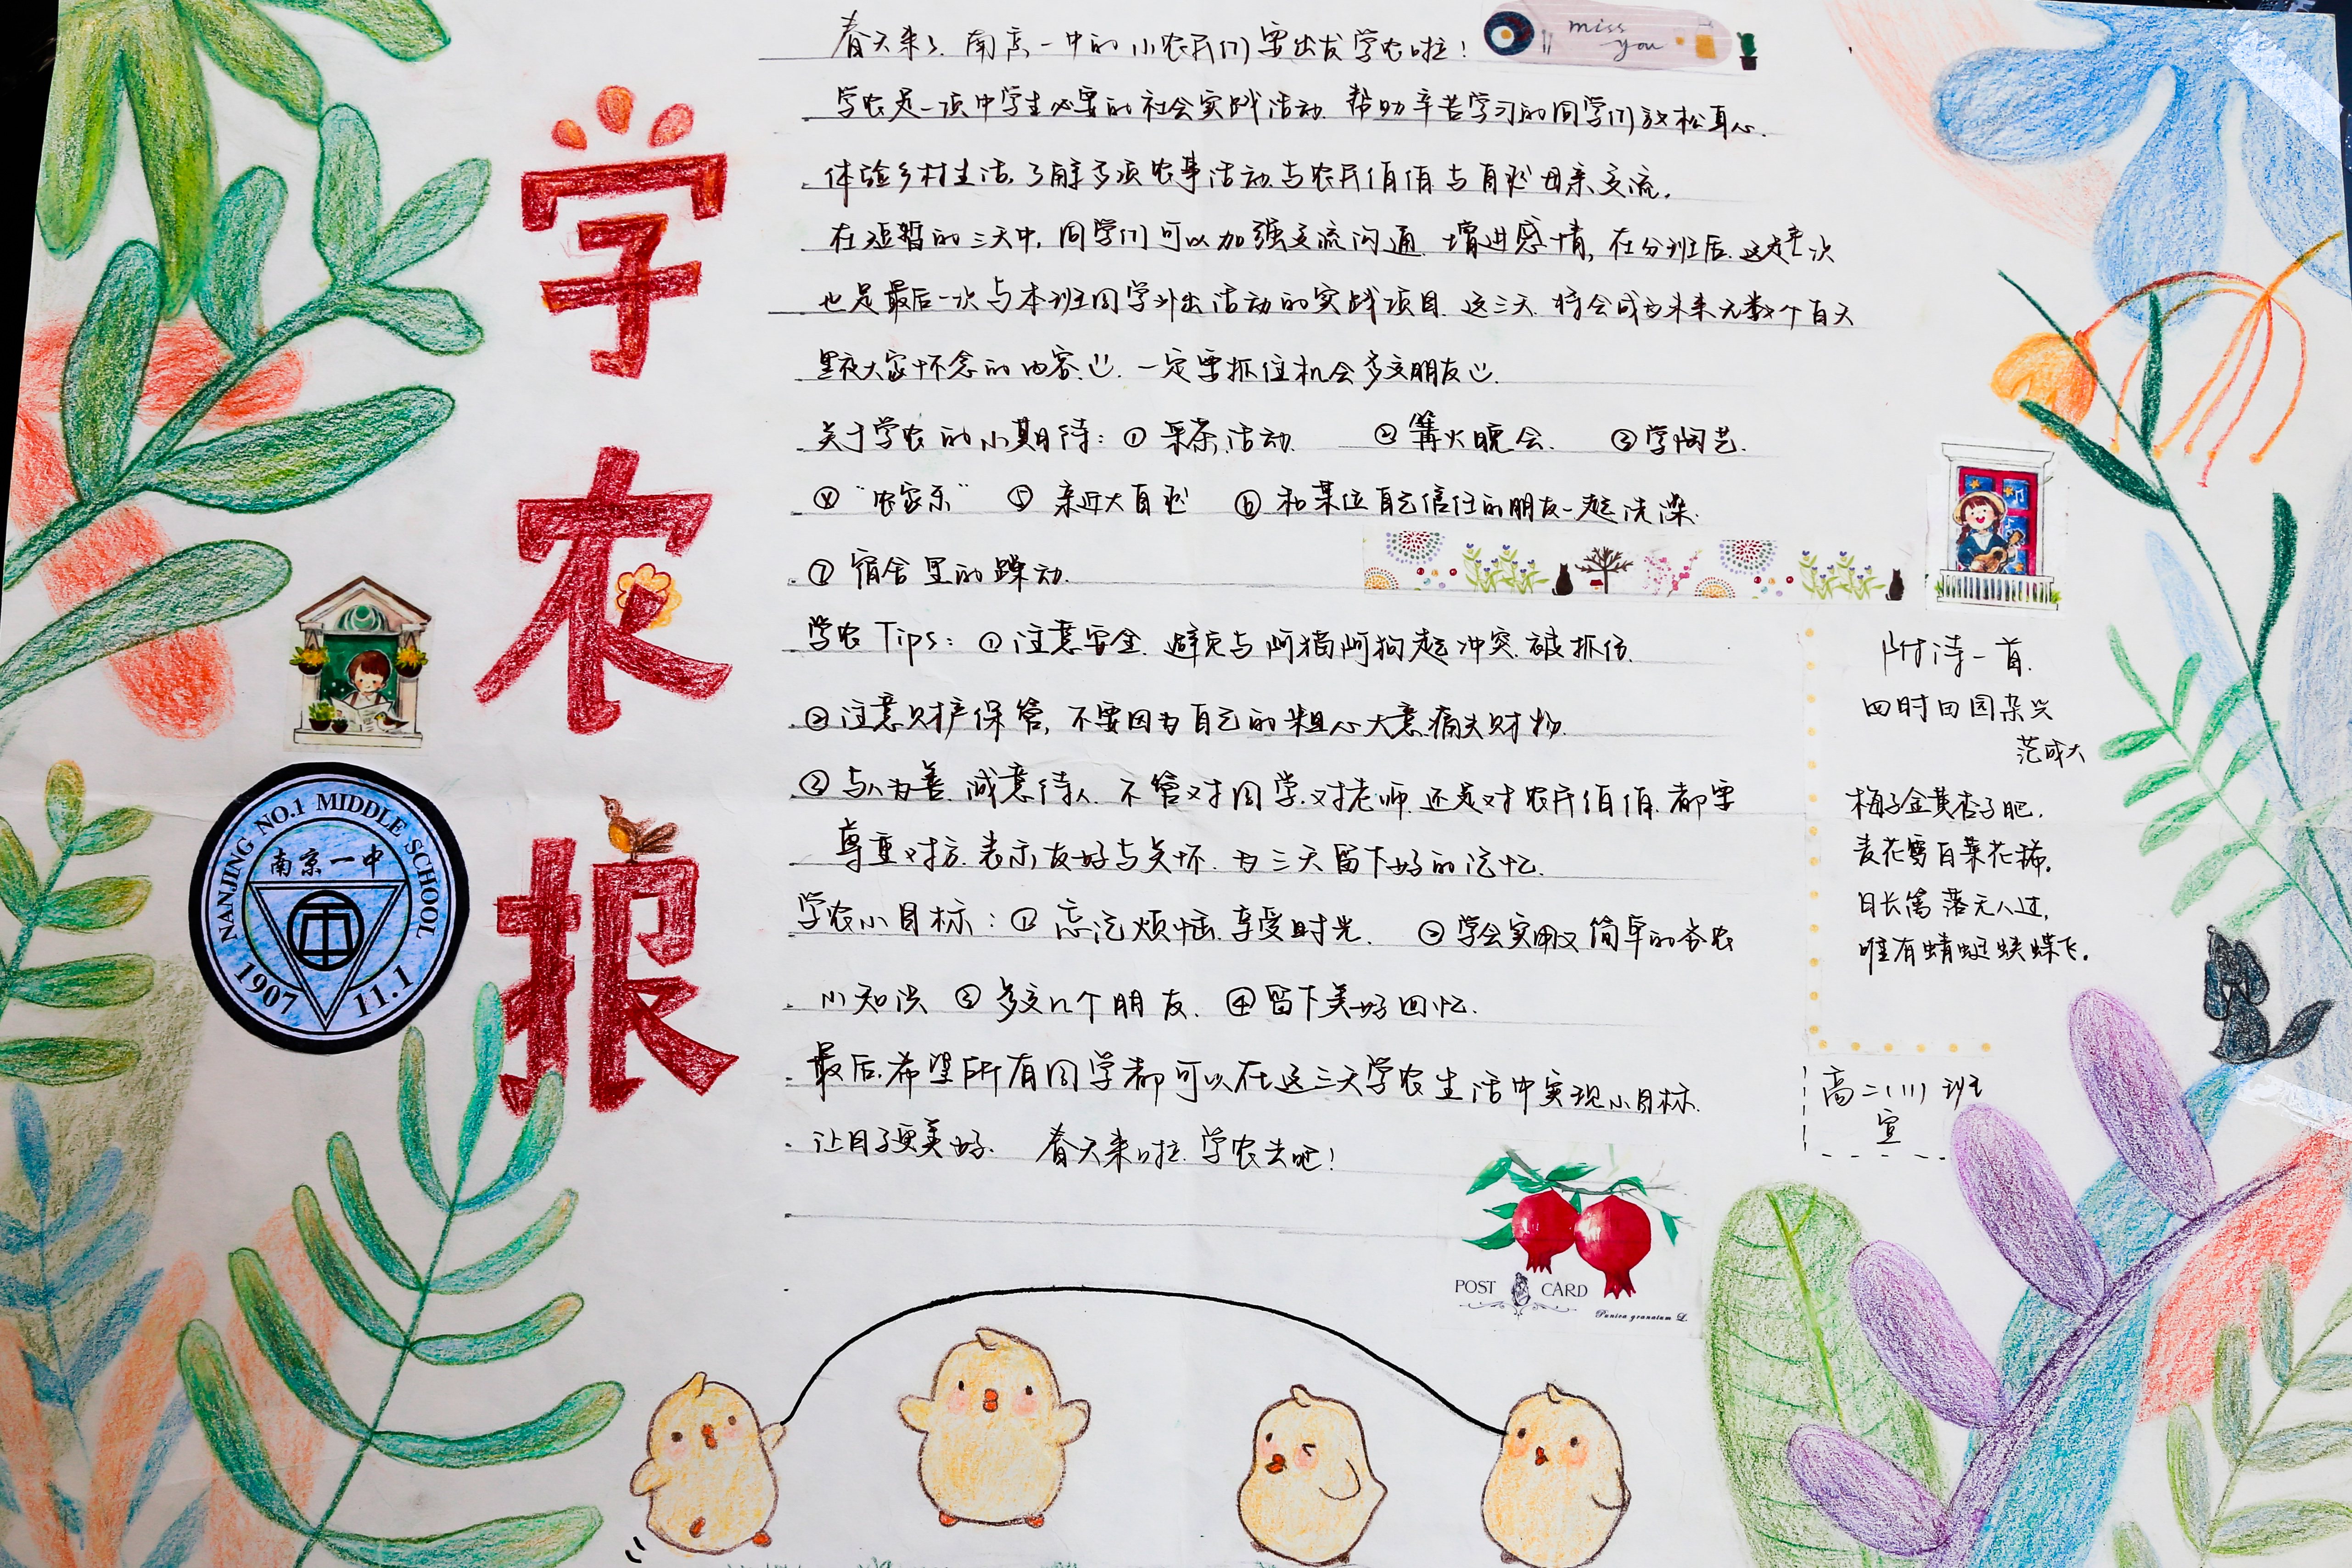 学农报
春天来了.南京一中的小农民们要出发学农啦!
miss you
学农是一项中学生必要的社会实践活动.帮助辛苦学习的同学们放松身心.
体验乡村生活.了解多项农事活动.与农民伯伯与自然母亲交流.
在短暂的三天中,同学们可以加强交流沟通.增进感情,在分班后.这是一次
也是最后一次与本班同学外出活动的实践项目.这三天.将会成为未来无数个白天
黑夜大家怀念的内容.一定要抓住机会多交朋友.
关于学农的小期待:①采茶活动. ②篝火晚会. ③学陶艺.
④"农家乐" ⑤亲近大自然 ⑥和某位自己信任的朋友一起洗澡.
⑦宿舍里的躁动.
学农Tips:①注意安全.避免与阿猫阿狗起冲突.被抓伤.
②注意财产保管,不要因为自己的粗心大意痛失财物.
②与人为善.诚意待人.不管对同学.对老师.还是对农民伯伯.都要
尊重对方.表示友好与关怀.为三天留下好的记忆.
学农小目标:①忘记烦恼.享受时光. ②学会实用又简单的务农
小知识 ③多交几个朋友. ④留下美好回忆.
最后.希望所有同学都可以在这三天学农生活中实现小目标.
让日子更美好. 春天来啦.学农去吧!
附诗一首.
四时田园杂兴
范成大
梅子金黄杏子肥,
麦花雪白菜花稀.
日长篱落无人过,
唯有蜻蜓蛱蝶飞.
高二(11)班
宣
NANJING NO.1 MIDDLE SCHOOL
南京一中
1907 11.1
POST CARD
Punica granatum L.